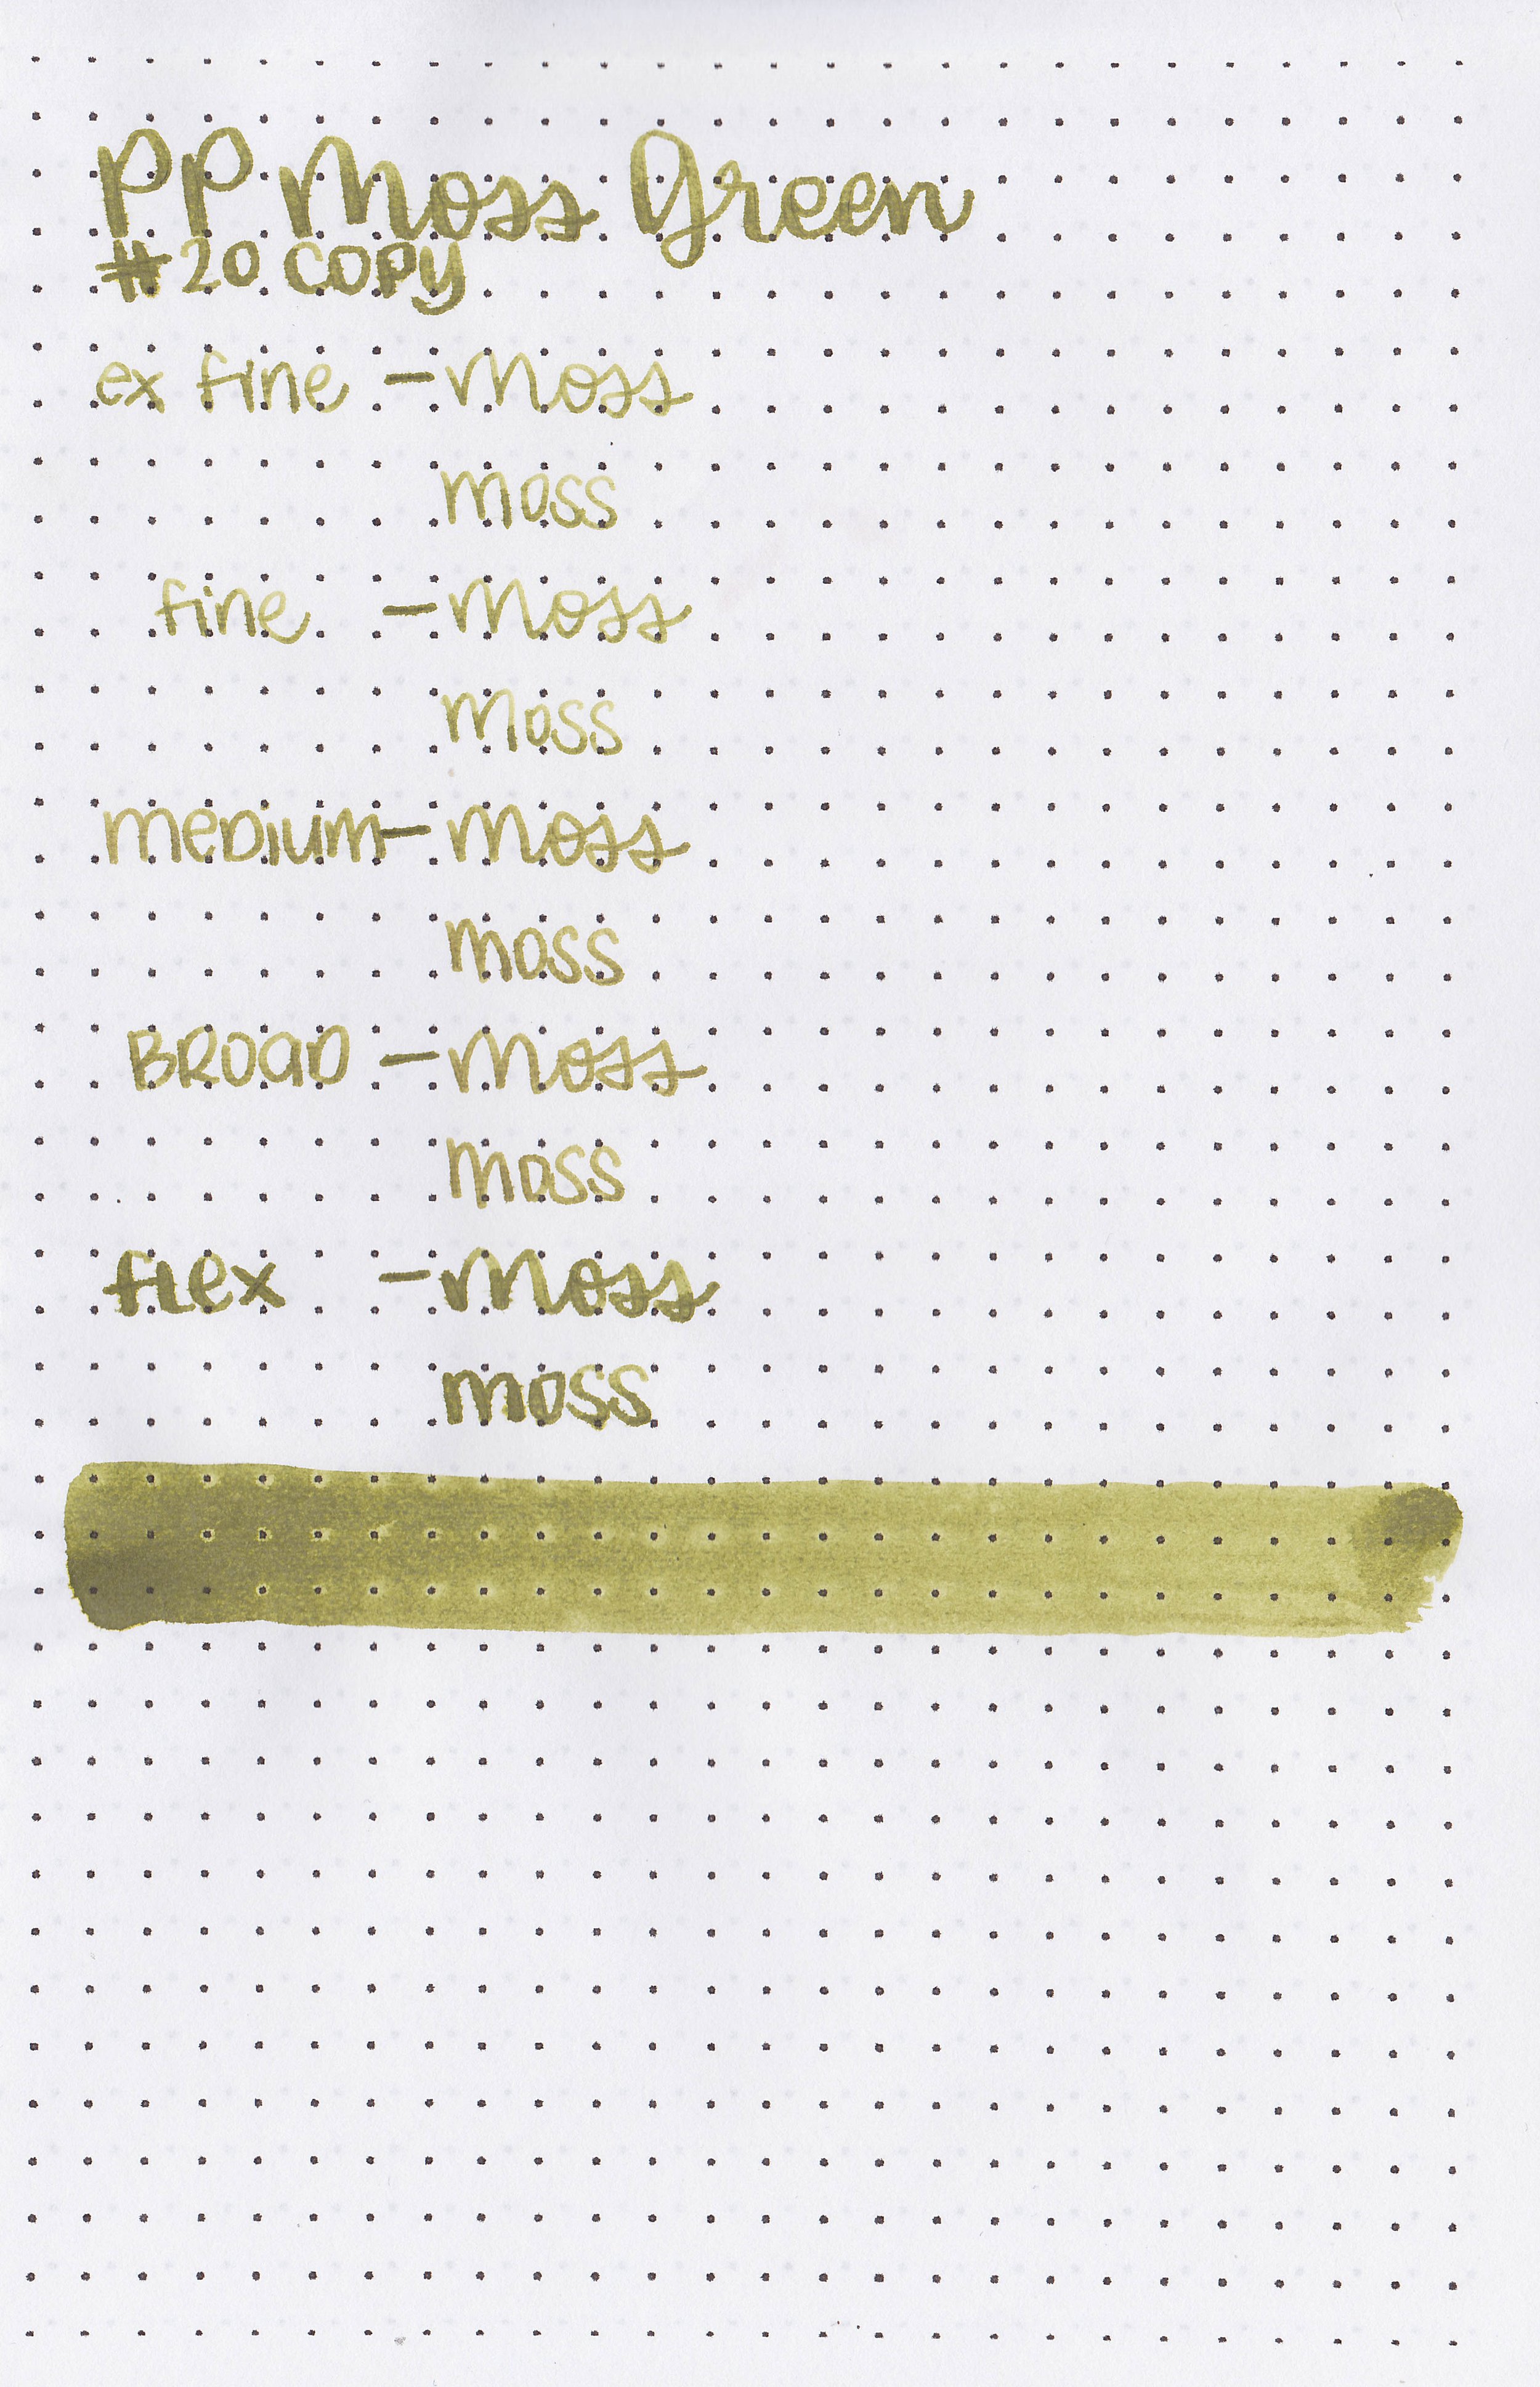 PP Moss Green
#20 COPY
ex fine - Moss
moss
fine - Moss
moss
MeDium - Moss
moss
BROaD - Moss
moss
fLex - Moss
moss